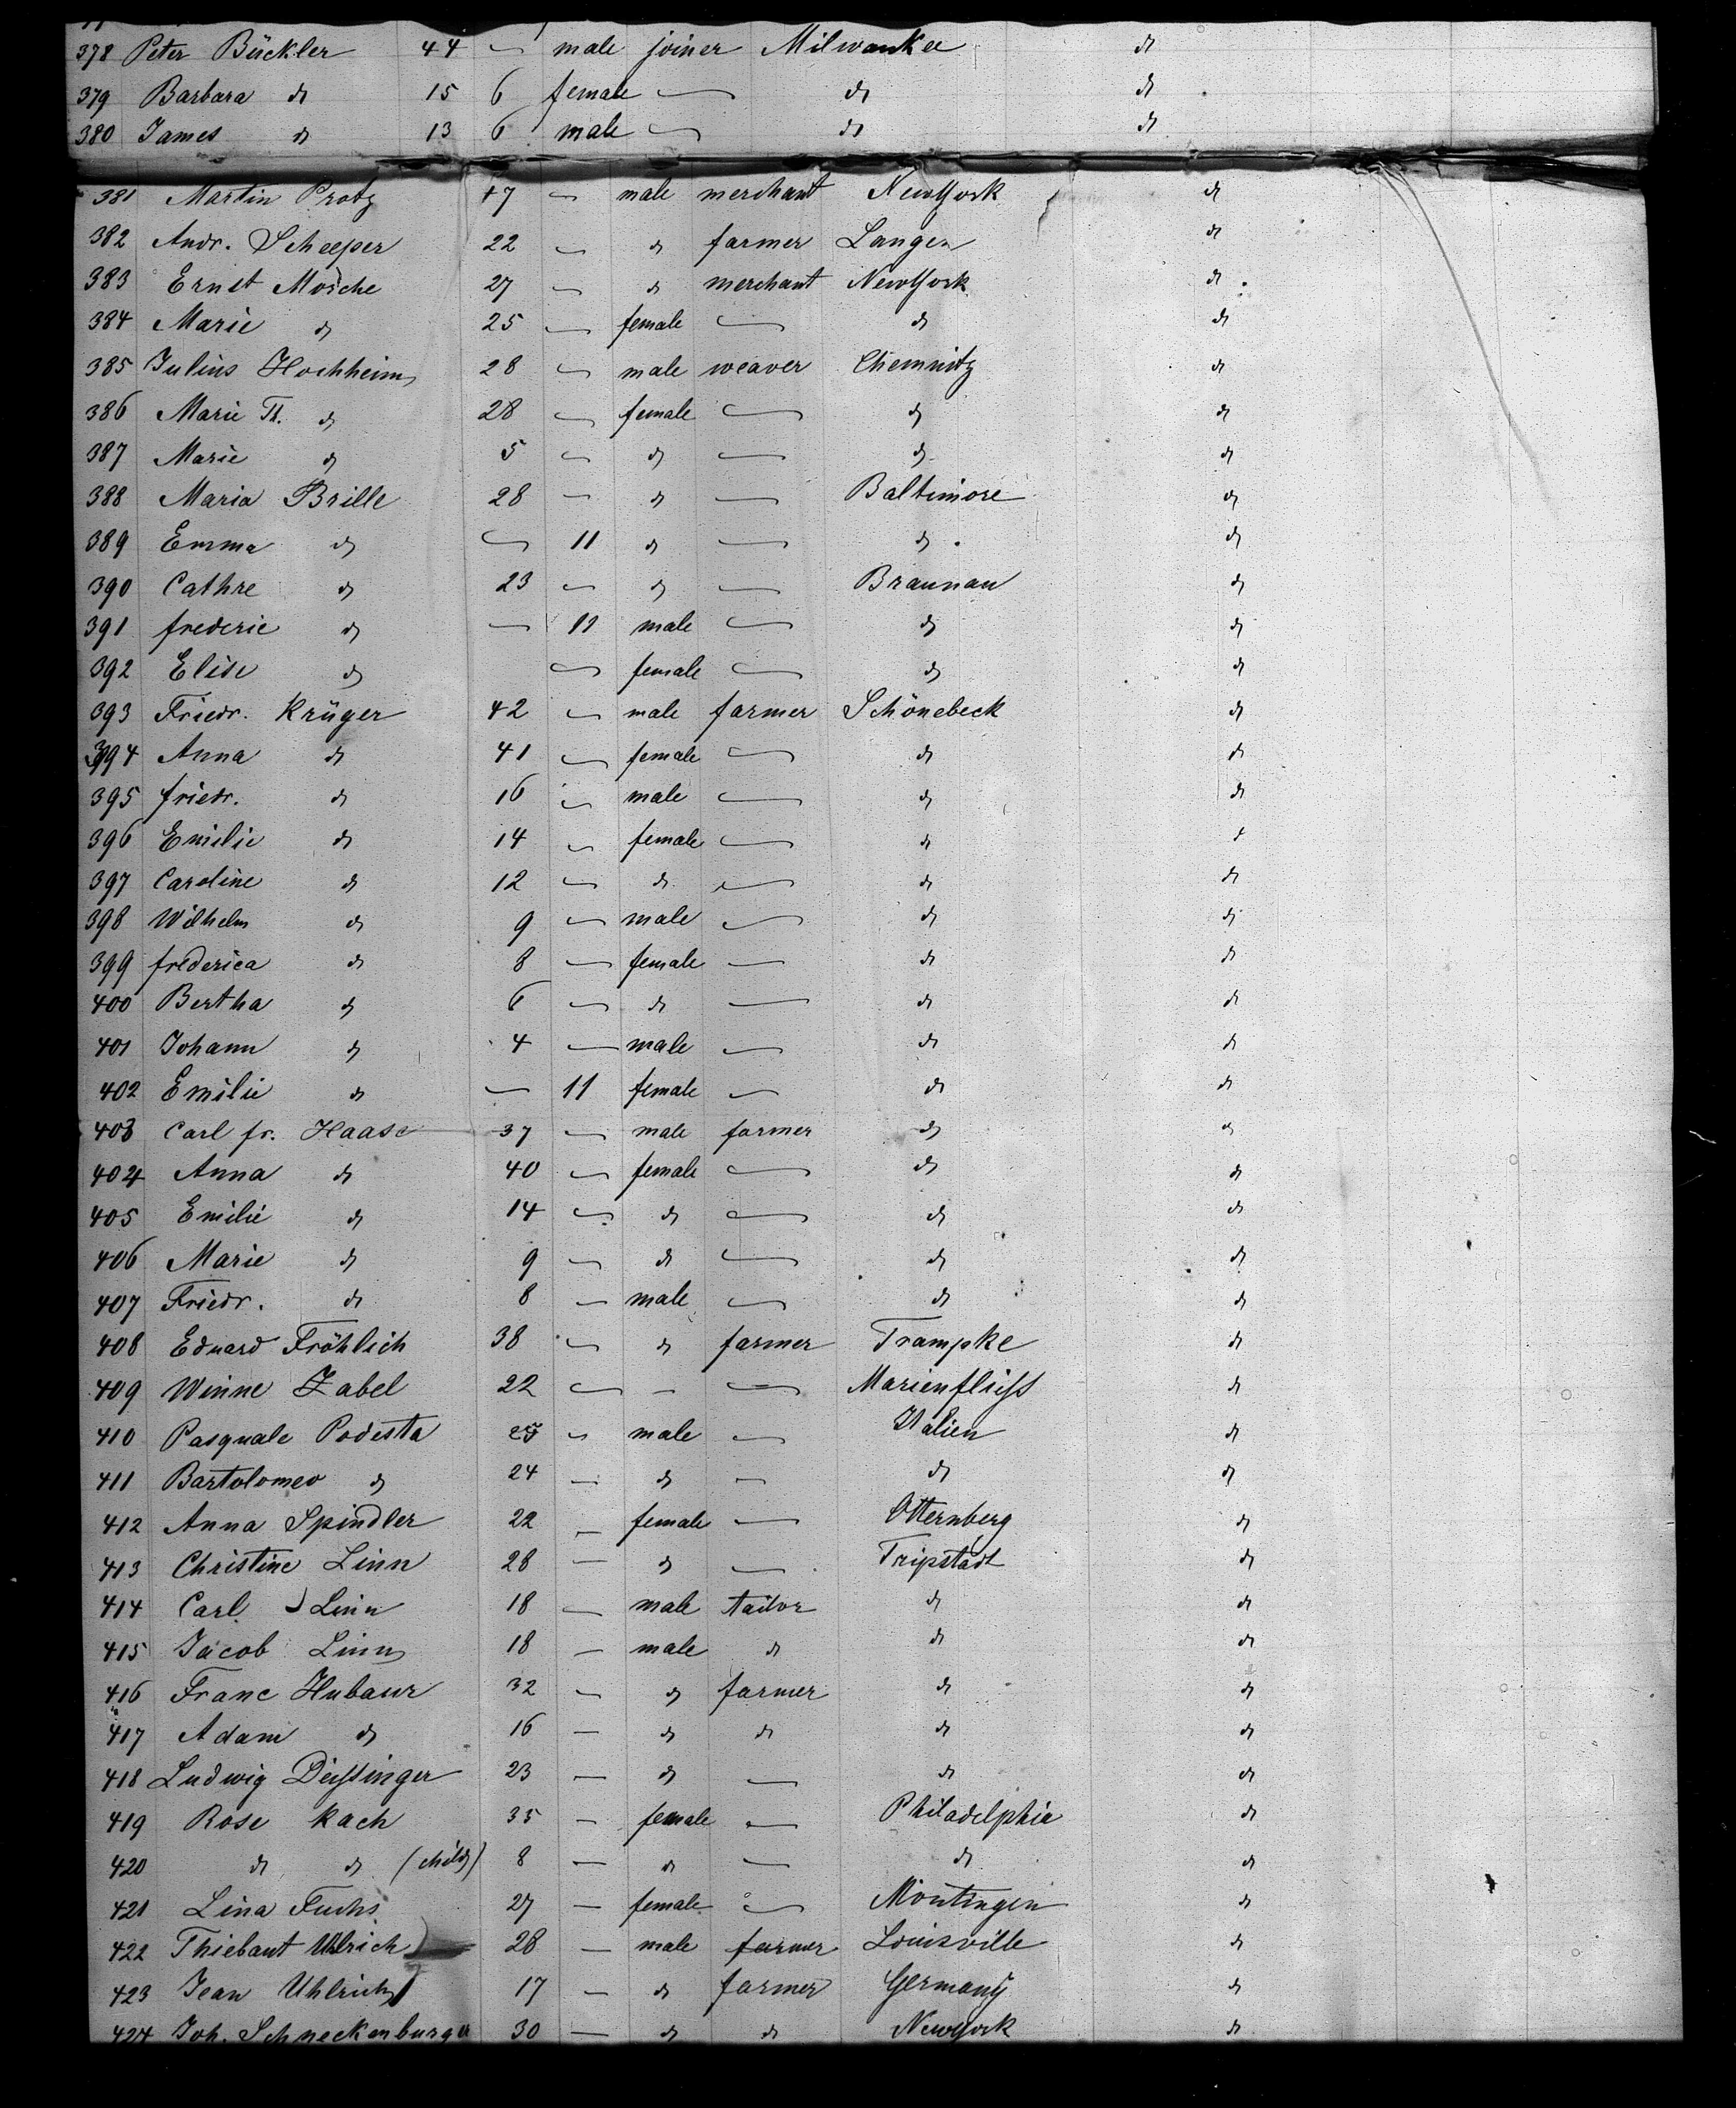 378 Peter Bückler 44 — male joiner Milwaukee do
379 Barbara do 15 6 female — do do
380 James do 13 6 male — do do
381 Martin Protz 47 — male merchant NewYork do
382 Andr. Scheeper 22 — do farmer Langen do
383 Ernst Mosche 27 — do merchant NewYork do
384 Marie do 25 — female — do do
385 Julius Hochheim 28 — male weaver Chemnitz do
386 Marie Th. do 28 — female — do do
387 Marie do 5 — do — do do
388 Maria Brille 28 — do — Baltimore do
389 Emma do — 11 do — do do
390 Cathre do 23 — do — Braunau do
391 frederic do — 11 male — do do
392 Elise do — female — do do
393 Friedr. Krüger 42 — male farmer Schönebeck do
394 Anna do 41 — female — do do
395 friedr. do 16 — male — do do
396 Emilie do 14 — female — do do
397 Caroline do 12 — do — do do
398 Wilhelm do 9 — male — do do
399 frederica do 8 — female — do do
400 Bertha do 6 — do — do do
401 Johann do 4 — male — do do
402 Emilie do — 11 female — do do
403 Carl fr. Haase 37 — male farmer do do
404 Anna do 40 — female — do do
405 Emilie do 14 — do — do do
406 Marie do 9 — do — do do
407 Friedr. do 8 — male — do do
408 Eduard Fröhlich 38 — do farmer Trampke do
409 Winne Zabel 22 — – — Marienfliess do
410 Pasquale Podesta 25 — male — Italien do
411 Bartolomeo do 24 — do — do do
412 Anna Spindler 22 — female — Otternberg do
413 Christine Linn 28 — do — Tripstadt do
414 Carl Linn 18 — male tailor do do
415 Jacob Linn 18 — male do do do
416 Franc Hubaur 32 — do farmer do do
417 Adam do 16 — do do do do
418 Ludwig Deissinger 23 — do — do do
419 Rose Kach 35 — female — Philadelphia do
420 do do (child) 8 — do — do do
421 Lina Fuchs 27 — female — Montingen do
422 Thiebaut Uhlrich 28 — male farmer Louisville do
423 Jean Uhlrich 17 — do farmer Germany do
424 Joh. Schneckenburger 30 — do do NewYork do